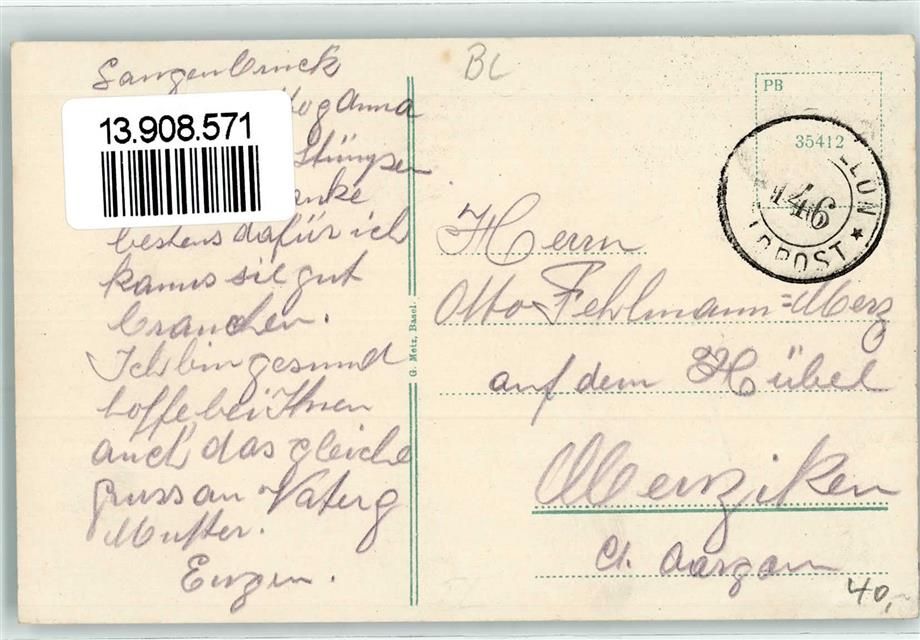 BL
Langenbruck
Anna
13.908.571
Stümpen
bestens dafür ich
kanns sie gut
brauchen.
Ich bin gesund
hoffe bei Ihnen
auch das gleiche
Gruss an Vater &
Mutter.
Eugen.
G. Metz, Basel.
PB
35412
146
POST
Herrn
Otto Fehlmann=Merz
auf dem Hübel
Menziken
Ct. Aargau
40,-